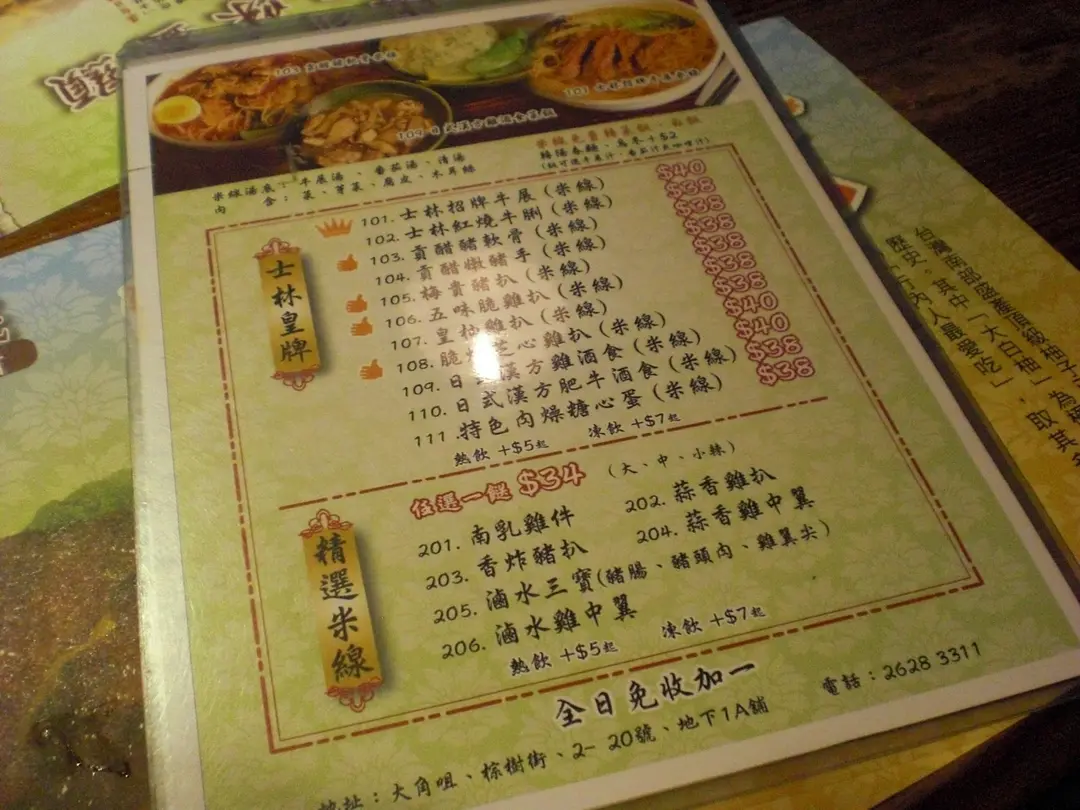 103
109 日式漢方雞酒食菜飯
101
米線湯底：牛展湯、番茄湯、清湯
肉
菜、菁菜、腐皮、木耳絲
烏冬+$2
士林皇牌
101. 士林招牌牛展 (米線) $40
102. 士林紅燒牛脷 (米線) $38
103. 貢醋豬軟骨 (米線) $38
104. 貢醋燉豬手 (米線) $38
105. 梅貴豬扒 (米線) $38
106. 五味脆雞扒 (米線) $38
107. 皇 雞扒 (米線) $38
108. 脆 芝心雞扒 (米線) $40
109. 日式漢方雞酒食 (米線) $40
110. 日式漢方肥牛酒食 (米線) $38
111. 特色肉燥糖心蛋 (米線)
熱飲 +$5起 凍飲 +$7起
精選米線
任選一餸 $34 (大、中、小辣)
201. 南乳雞件 202. 蒜香雞扒
203. 香炸豬扒 204. 蒜香雞中翼
205. 滷水三寶(豬腸、豬頭肉、雞翼尖)
206. 滷水雞中翼
熱飲 +$5起 凍飲 +$7起
全日免收加一
地址：大角咀、棕樹街、2- 20號、地下1A舖
電話：2628 3311
台灣南部盛產頂級柚子
歷史，其中「大白柚」為
行內人最愛吃」